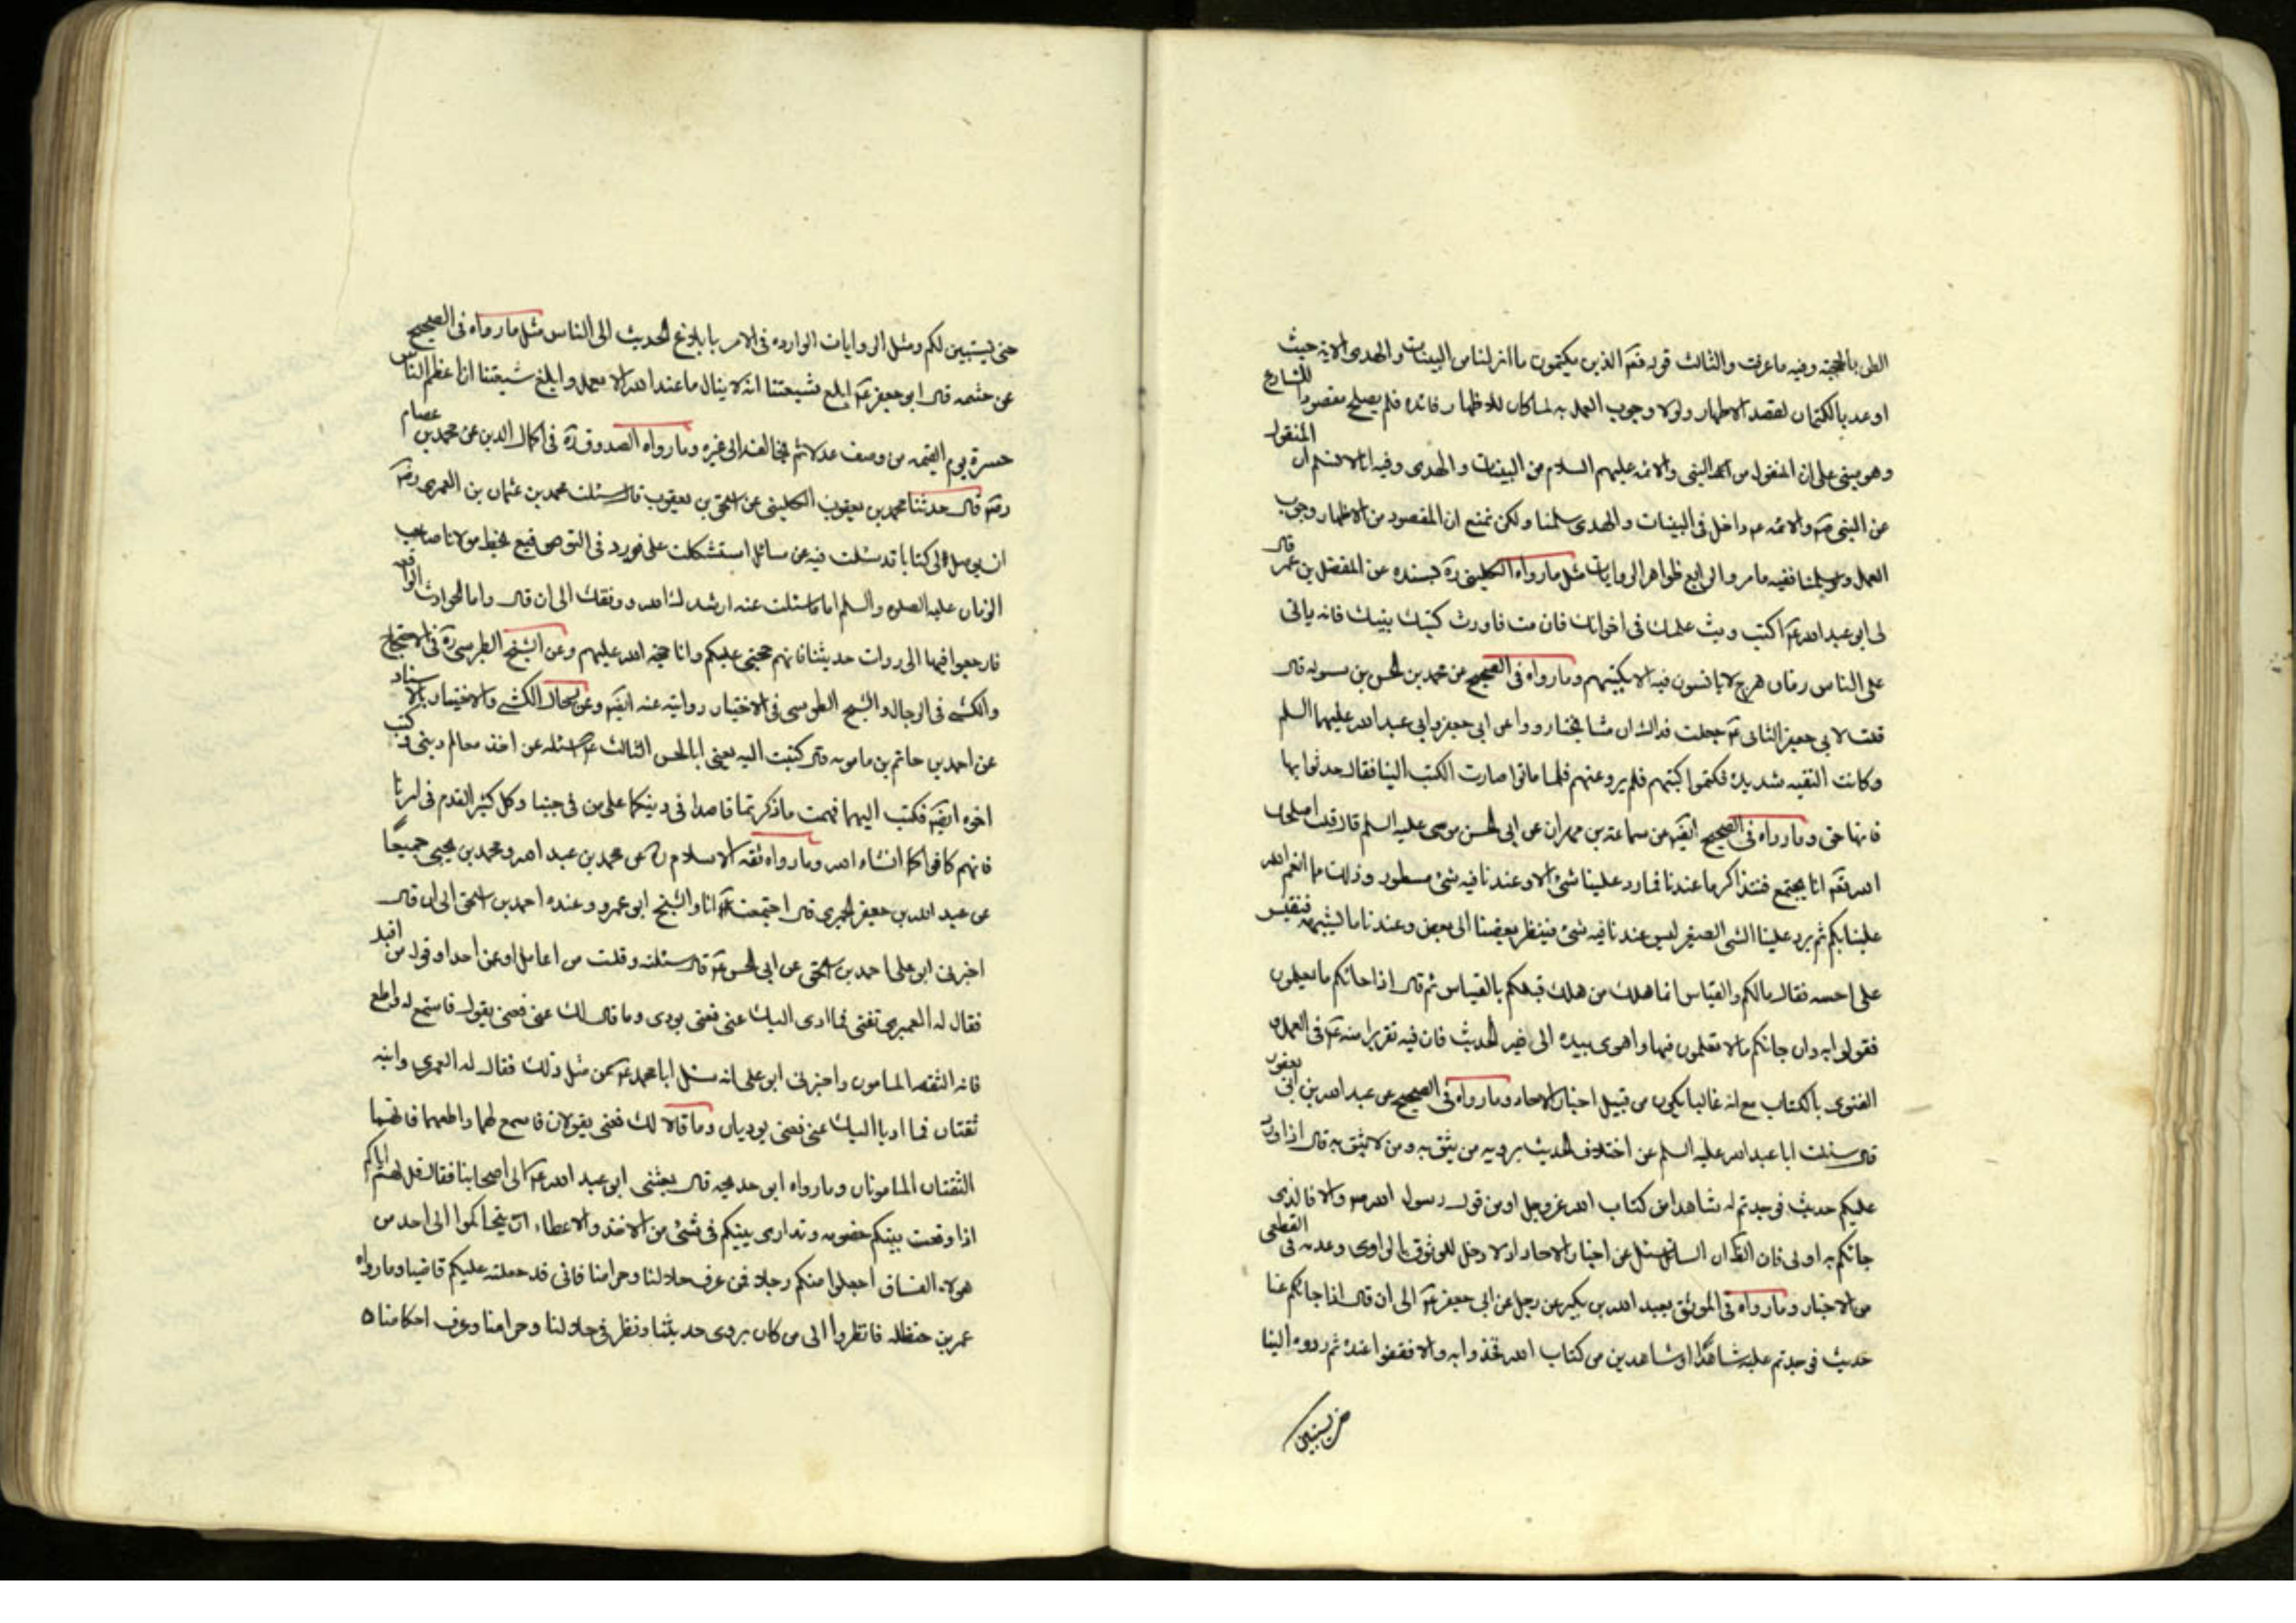 الظن بالحجته وفيه ما عرفت والثالث قوله تعم الذين يكتمون ما انزلناس البينات والهدى الاية حيث
اوعد بالكتمان لقصد الاظهار ولولا وجوب العمل به لما كان للاظهار فائده فلم يصلح مقصودا للشارع
وهو مبنى على ان المنقول من النبى والائمه عليهم السلام من البينات والهدى وفيه انا لا نسلم ان المنقول
عن النبى صم والائمه عم داخل فى البينات والهدى سلمنا ولكن نمنع ان المقصود من الاظهار وجوب
العمل ففيه ما مر والرابع ظواهر الروايات مثل ما رواه الكلينى ره بسنده عن المفضل بن عمر قال
لى ابو عبد الله عم اكتب وبث علمك فى اخوانك فان مت فاورث كتبك بنيك فانه ياتى
على الناس زمان هرج لا يانسون فيه الا بكتبهم وما رواه فى الصحيح عن محمد بن الحسن بن سوله قال
قلت لابى جعفر الثانى عم جعلت فداك ان مشايخنا رووا عن ابى جعفر وابى عبد الله عليهما السلم
وكانت التقيه شديدة فكتموا كتبهم فلم يرو عنهم فلما ماتوا صارت الكتب الينا فقال حدثوا بها
فانها حق وما رواه فى الصحيح ايضم عن سماعة بن مهران عن ابى الحسن موسى عليه السلم قال قلت اصلحك
الله تعم انا نجتمع فنتذاكر ما عندنا فما رد علينا شئ الا وعندنا فيه شئ مسطور وذلك مما انعم الله
علينا بكم ثم يرد علينا الشى الصغير ليس عندنا فيه شئ فينظر بعضنا الى بعض وعندنا ما يشبهه فنقيس
على احسنه فقال مالكم والقياس انما هلك من هلك قبلكم بالقياس ثم قال اذا جائكم ما تعلمون
فقولوا به وان جائكم ما لا تعلمون فيها واهوى بيده الى فيه الحديث فان فيه تقريرا منه عم فى العمل و
الفتوى بالكتاب مع انه غالبا يكون من قبيل اخبار الاحاد وما رواه فى الصحيح عن عبد الله بن ابى يعفور
قال سئلت ابا عبد الله عليه السلم عن اختلاف الحديث يرويه من يثق به ومن لا يثق به قال اذا ورد
عليكم حديث فوجدتم له شاهدا من كتاب الله عز وجل او من قول رسول الله ص والا فالذى
جائكم به اولى فان الظ ان السائل سئل عن اخبار الاحاد اذ لا دخل للوثوق بالراوى وعدمه فى القطعى
من الاخبار وما رواه فى الموثق بعبد الله بن بكير عن رجل عن ابى جعفر عم الى ان قال اذا جائكم عنا
حديث فوجدتم عليه شاهدا او شاهدين من كتاب الله فخذوا به والا فقفوا عنده ثم ردوه الينا
حتى يستبين
حتى يستبين لكم ومثل الروايات الوارده فى الامر بابلاغ الحديث الى الناس مثل ما رواه فى الصحيح
عن خثيمه قال ابو جعفر عم ابلغ شيعتنا انه لا ينال ما عند الله الا بعمل وابلغ شيعتنا ان اعظم الناس
حسرة يوم القيمه من وصف عدلا ثم يخالفه الى غيره وما رواه الصدوق ره فى اكمال الدين عن محمد بن عصام
رضم قال حدثنا محمد بن يعقوب الكلينى عن اسحق بن يعقوب قال سئلت محمد بن عثمان بن العمرى رضم
ان يوصل الى كتابا قد سئلت فيه عن مسائل استشكلت على فورد فى التوقيع بخط مولانا صاحب
الزمان عليه الصلوة والسلم اما ما سئلت عنه ارشدك الله ووفقك الى ان قال واما الحوادث الواقعه
فارجعوا فيها الى روات حديثنا فانهم حجتى عليكم وانا حجة الله عليهم وعن الشيخ الطبرسى ره فى الاحتجاج
والكشى فى الرجال والشيخ الطوسى فى الاختيار روايته عنه ايضم وعن رجال الكشى والاختيار بالاسناد
عن احمد بن حاتم بن مامويه قال كتبت اليه يعنى ابا الحسن الثالث عم اسئله عن اخذ معالم دينى وكتب
اخوه ايضم فكتب اليهما فهمت ما ذكرتما فاصمدا فى دينكما على من فى حبنا وكل كثير القدم فى امرنا
فانهم كافوكما انشاء الله وما رواه ثقه الاسلام ره عن محمد بن عبد الله ومحمد بن يحيى جميعا
عن عبد الله بن جعفر الحميرى قال اجتمعت انا والشيخ ابو عمرو وعنده احمد بن اسحق الى ان قال
اخبرنى ابو على احمد بن اسحق عن ابى الحسن عم قال سئلته وقلت من اعامل او عن اخذ او قول من اقبل
فقال له العميرى ثقتى فما ادى اليك عنى فعنى يودى وما قال لك عنى فعنى يقول فاستمع له واطع
فانه الثقه المامون واخبرنى ابو على انه سئل ابا محمد عم عن مثل ذلك فقال له العمرى وابنه
ثقتان فما اديا اليك عنى فعنى يوديان وما قالا لك فعنى يقولان فاسمع لهما واطعهما فانهما
الثقتان المامونان وما رواه ابو خديجه قال بعثنى ابو عبد الله عم الى اصحابنا فقال قل لهم اياكم
اذا وقعت بينكم خصومه وتدارى بينكم فى شئ من الاخذ والاعطاء ان يتحاكموا الى احد من
هولاء الفساق اجعلوا منكم رجلا فمن عرف حلالنا وحرامنا فانى قد جعلته عليكم قاضيا وما رواه
عمر بن حنظله فانظروا الى من كان يروى حديثنا ونظر فى حلالنا وحرامنا وعرف احكامنا